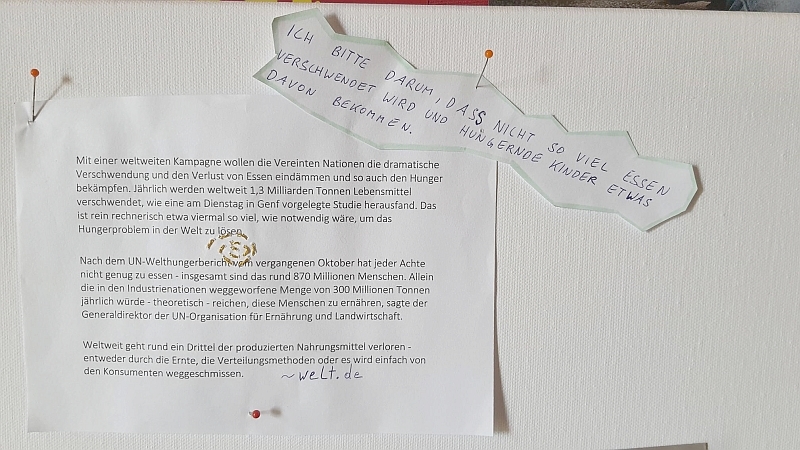 ICH BITTE DARUM, DASS NICHT SO VIEL ESSEN
VERSCHWENDET WIRD UND HUNGERNDE KINDER ETWAS
DAVON BEKOMMEN.
Mit einer weltweiten Kampagne wollen die Vereinten Nationen die dramatische
Verschwendung und den Verlust von Essen eindämmen und so auch den Hunger
bekämpfen. Jährlich werden weltweit 1,3 Milliarden Tonnen Lebensmittel
verschwendet, wie eine am Dienstag in Genf vorgelegte Studie herausfand. Das
ist rein rechnerisch etwa viermal so viel, wie notwendig wäre, um das
Hungerproblem in der Welt zu lösen.
Nach dem UN-Welthungerbericht vom vergangenen Oktober hat jeder Achte
nicht genug zu essen - insgesamt sind das rund 870 Millionen Menschen. Allein
die in den Industrienationen weggeworfene Menge von 300 Millionen Tonnen
jährlich würde - theoretisch - reichen, diese Menschen zu ernähren, sagte der
Generaldirektor der UN-Organisation für Ernährung und Landwirtschaft.
Weltweit geht rund ein Drittel der produzierten Nahrungsmittel verloren -
entweder durch die Ernte, die Verteilungsmethoden oder es wird einfach von
den Konsumenten weggeschmissen. ~welt.de